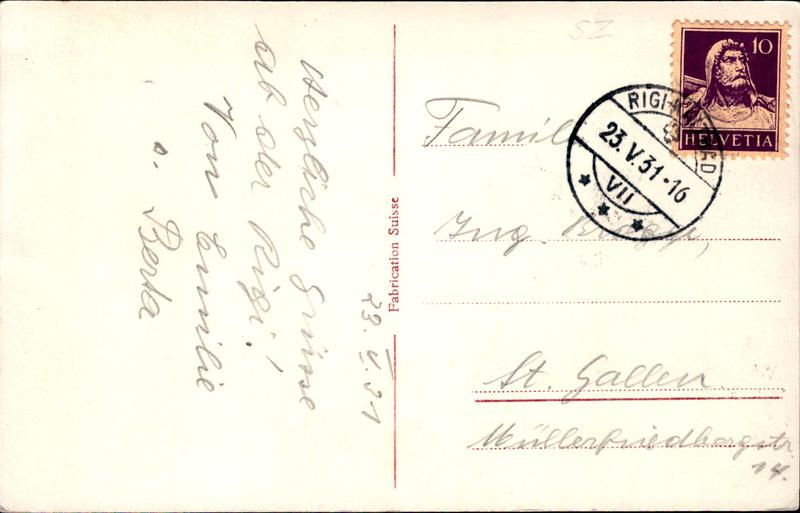 Herzliche Grüsse
ab der Rigi!
Von Emilie
u. Berta
23. V. 31
Fabrication Suisse
SZ
10
HELVETIA
RIGI
23.V.31-16
VII
Familie
Ing.
St. Gallen
Müllerfriedbergstr.
14.